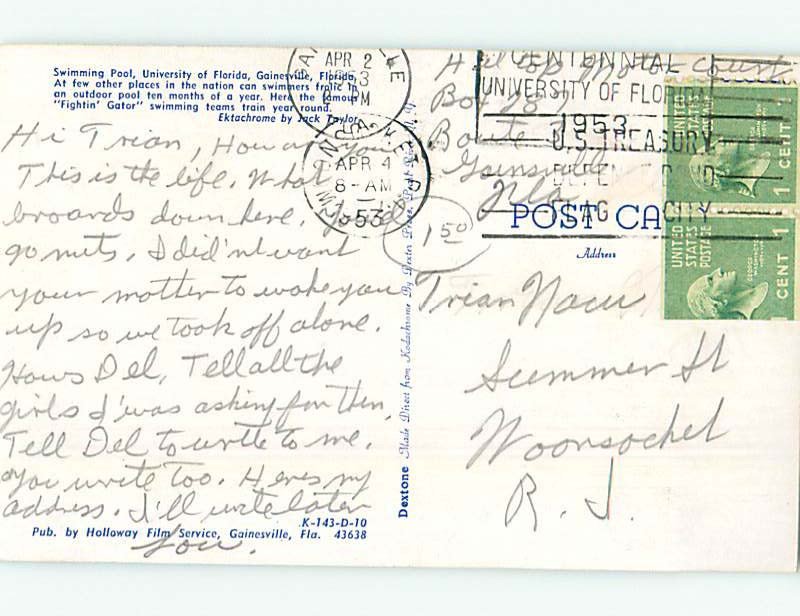 Swimming Pool, University of Florida, Gainesville, Florida.
At few other places in the nation can swimmers frolic in
an outdoor pool ten months of a year. Here the famous
"Fightin' Gator" swimming teams train year round.
Ektachrome by Jack Taylor
Hi Trian, How are you
This is the life. What
broards down here. You'd
go nuts. I did'nt want
your mother to wake you
up so we took off alone.
Hows Del, Tell all the
girls I was asking for then.
Tell Del to write to me.
you write too. Heres my
address. I'll write later
Lou.
K-143-D-10
Pub. by Holloway Film Service, Gainesville, Fla. 43638
Dextone Made Direct from Kodachrome By Dexter Press, Pearl River, N. Y.
APR 2
1953
PM
APR 4
8-AM
53
CENTENNIAL
UNIVERSITY OF FLORIDA
1953
U.S. TREASURY
DEFENSE BOND
FLAG CITY
Hill Top Motor Court
Box 287
Route
Gainsville
Fla
150
POST CARD
Address
Trian Nacu
Summer St
Woonsocket
R. I.
UNITED
STATES
POSTAGE
1 CENT 1
UNITED
STATES
POSTAGE
1 CENT 1